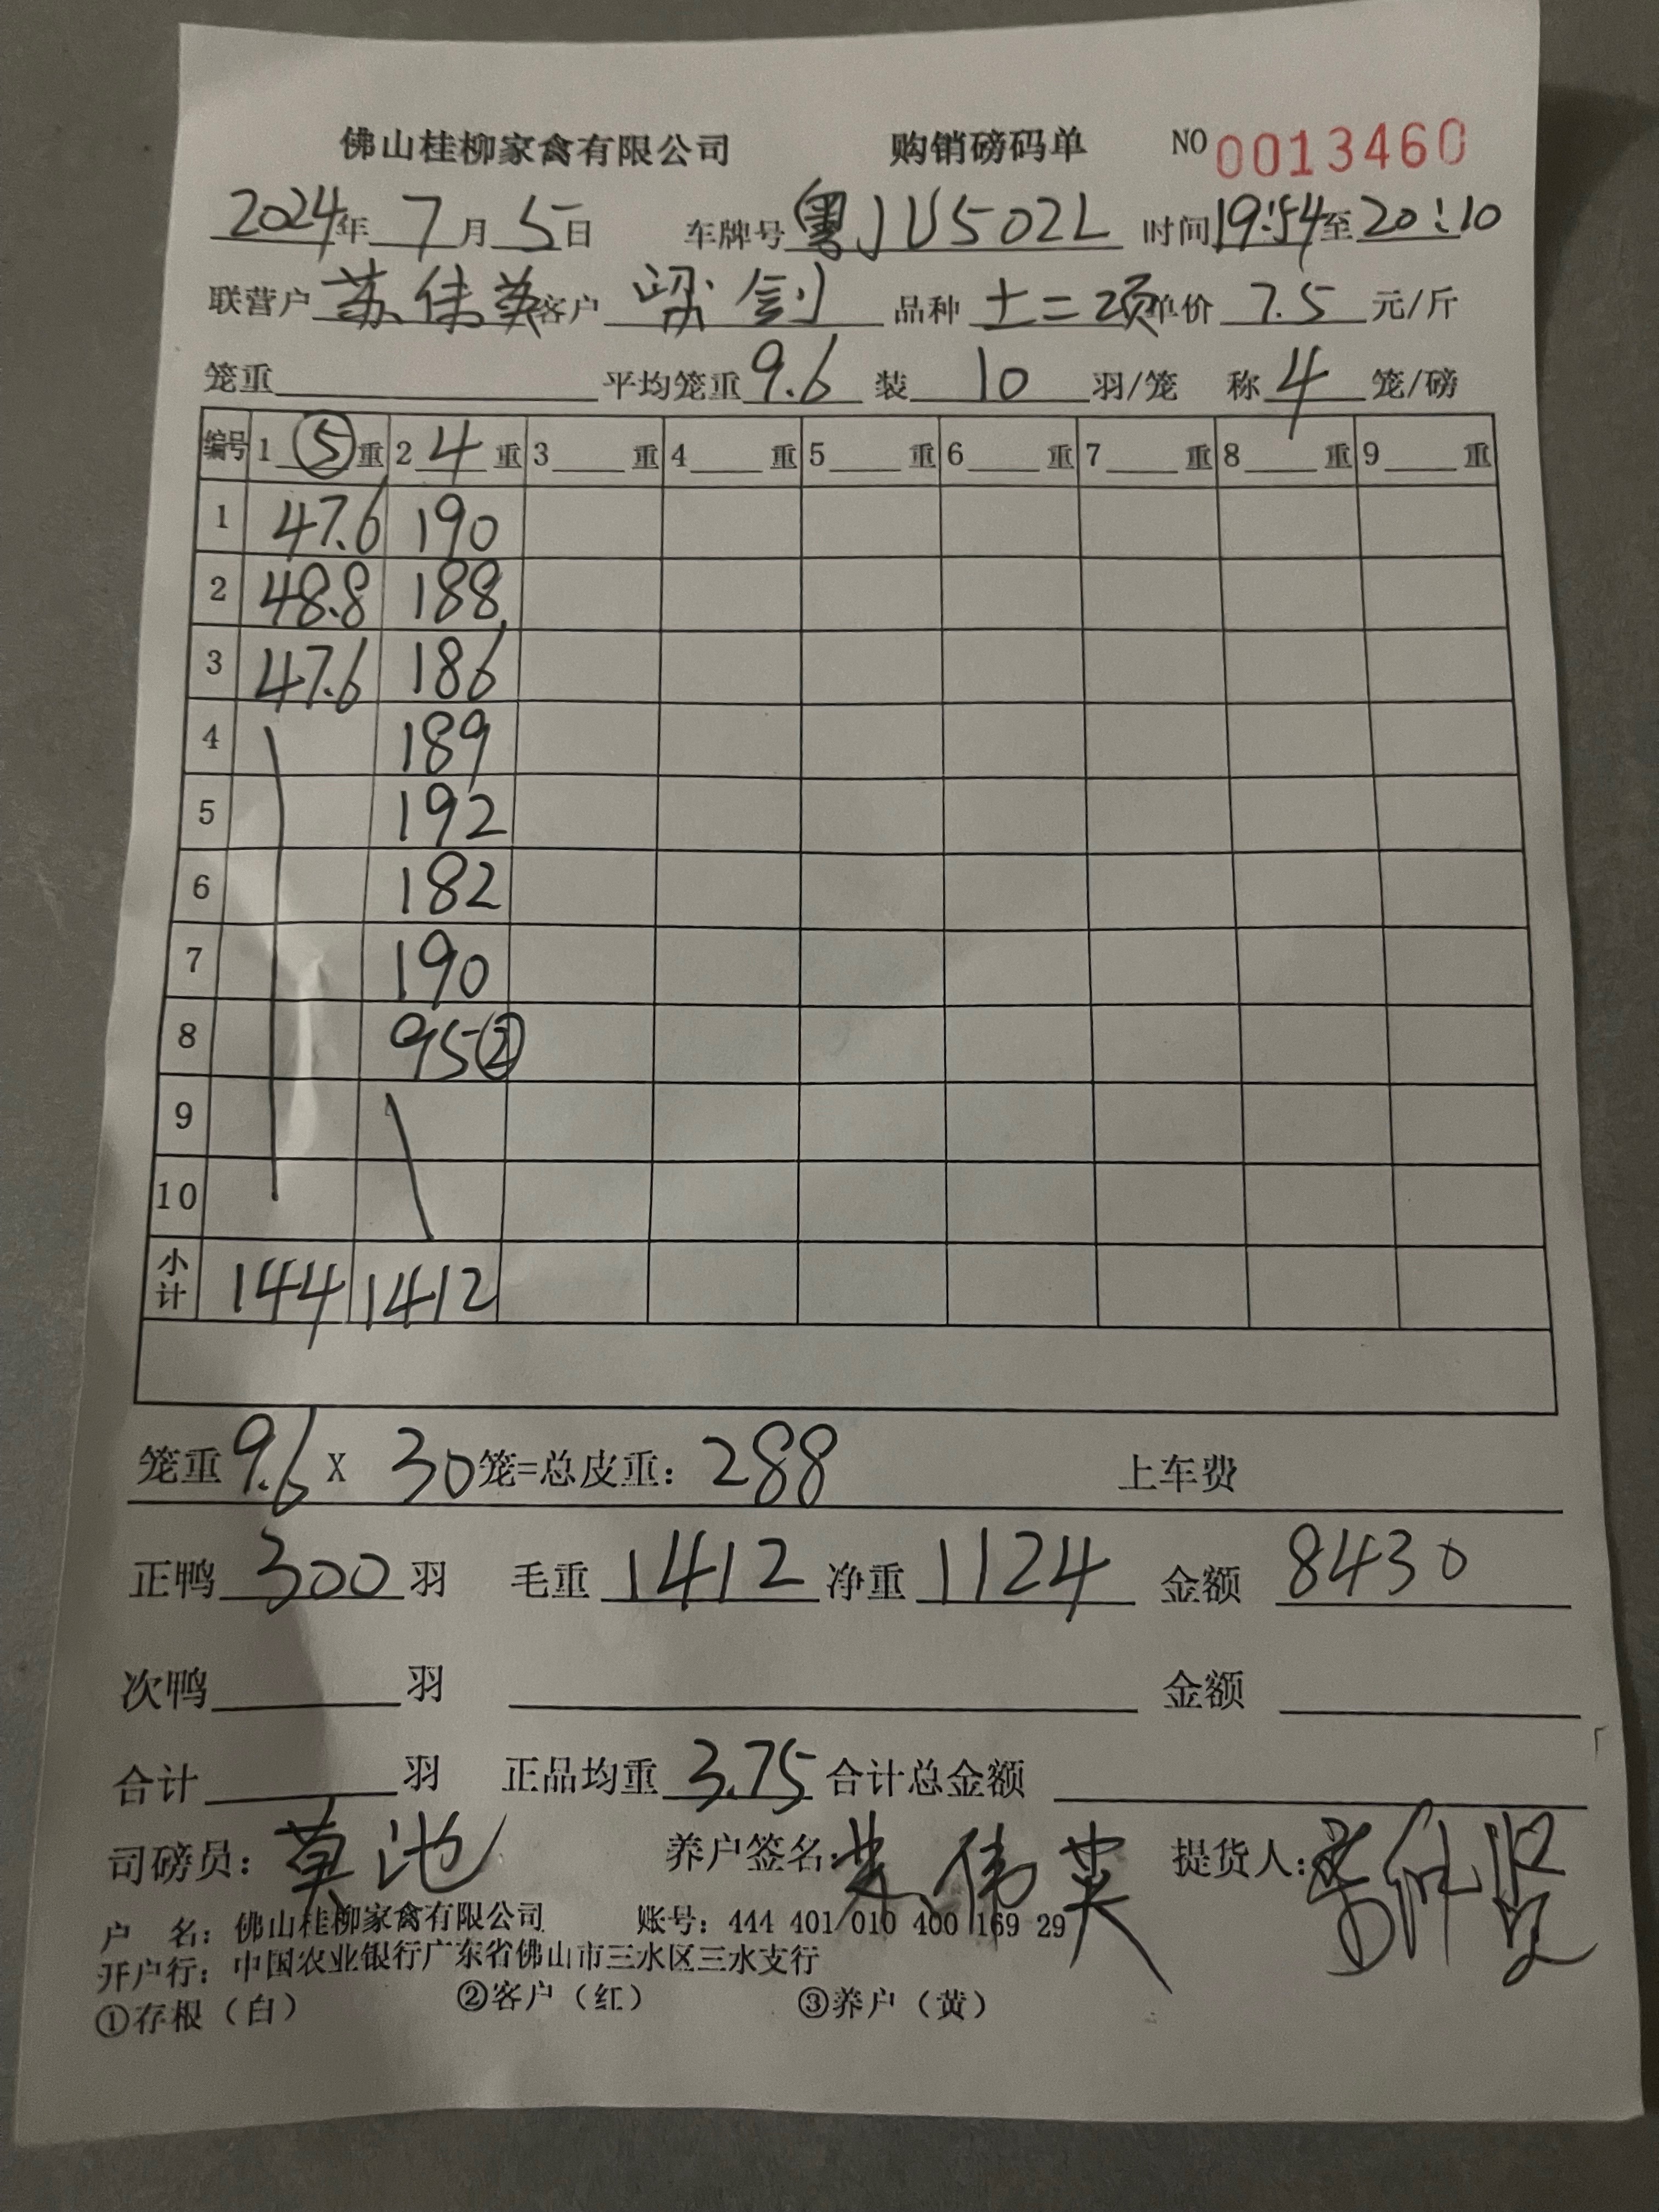 佛山桂柳家禽有限公司 购销磅码单 NO 0013460
2024年 7月 5日 车牌号 粤JU502L 时间 19:54至 20:10
联营户 苏伟英 客户 梁剑 品种 土二项 单价 7.5 元/斤
笼重 平均笼重 9.6 装 10 羽/笼 称 4 笼/磅
编号 1 ⑤ 重 2 4 重 3 重 4 重 5 重 6 重 7 重 8 重 9 重
1 47.6 190
2 48.8 188
3 47.6 186
4 189
5 192
6 182
7 190
8 95②
9
10
小计 144 1412
笼重 9.6 X 30 笼=总皮重: 288 上车费
正鸭 300 羽 毛重 1412 净重 1124 金额 8430
次鸭 羽 金额
合计 羽 正品均重 3.75 合计总金额
司磅员: 莫池 养户签名: 伟英 提货人:
户 名: 佛山桂柳家禽有限公司 账号: 444 401 010 400 169 29
开户行: 中国农业银行广东省佛山市三水区三水支行
①存根(白) ②客户(红) ③养户(黄)